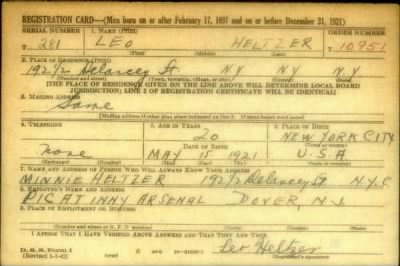 REGISTRATION CARD—(Men born on or after February 17, 1897 and on or before December 31, 1921)
SERIAL NUMBER 1. NAME (Print) ORDER NUMBER
T 281 LEO HELTZER T 10951
(First) (Middle) (Last)
2. PLACE OF RESIDENCE (Print)
192 1/2 Delancey St N.Y. N.Y. N.Y.
(Number and street) (Town, township, village, or city) (County) (State)
[THE PLACE OF RESIDENCE GIVEN ON THE LINE ABOVE WILL DETERMINE LOCAL BOARD
JURISDICTION; LINE 2 OF REGISTRATION CERTIFICATE WILL BE IDENTICAL]
3. MAILING ADDRESS
Same
[Mailing address if other than place indicated on line 2. If same insert word same]
4. TELEPHONE 5. AGE IN YEARS 6. PLACE OF BIRTH
20 NEW YORK CITY
DATE OF BIRTH
none MAY 15 1921 U.S.A
(Exchange) (Number) (Mo.) (Day) (Yr.) (State or country)
7. NAME AND ADDRESS OF PERSON WHO WILL ALWAYS KNOW YOUR ADDRESS
MINNIE HELTZER 192 1/2 Delancey St N.Y.C
8. EMPLOYER'S NAME AND ADDRESS
PICATINNY ARSENAL DOVER, N.J.
9. PLACE OF EMPLOYMENT OR BUSINESS
(Number and street or R. F. D. number) (Town) (County) (State)
I AFFIRM THAT I HAVE VERIFIED ABOVE ANSWERS AND THAT THEY ARE TRUE.
D. S. S. Form 1
(Revised 1-1-42) Leo Heltzer